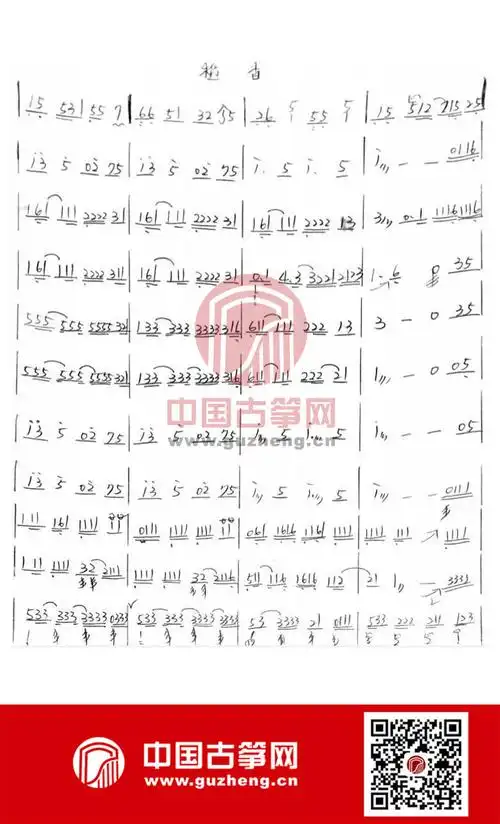 稻香
15 53 | 55 7 | 66 51 32 35 | 26 5 55 5 | 15 512 715 25
i3 5 02 75 | i3 5 02 75 | i. 5 i. 5 | i,,, - - 0116
161 111 2222 31 | 161 111 2222 31 | 161 111 2222 13 | 3,,, 0.1 1116 1116
161 111 2222 311 | 161 111 2222 31 | 0.1 4.3 3221 2123 | 1 - 6 0 35
555 555 5555 321 | 133 333 3333 316 | 611 111 222 13 | 3 - 0 35
555 555 5555 321 | 133 333 3333 316 | 611 111 222 31 | 1,,, - 0 05
中国古筝网
www.guzheng.cn
i3 5 02 75 | i3 5 02 75 | i,,, 5 i,,, 5 | i,,, - - 05
i3 5 02 75 | i3 5 02 75 | i,,, 5 i,,, 5 | i,,, - - 0111
111 161 1111 11 | 0111 1111 1111 1111 | 061 1616 1161 1111 | 1111 1111 111 1111
111 1111 32 2111 | 1111 1111 32 2116 | 511 116 1616 112 | 21 1,, - 3333
533 333 3333 0333 | 533 333 3333 3333 | 53 3333 21 0111 | 533 222 211 123
中国古筝网
www.guzheng.cn